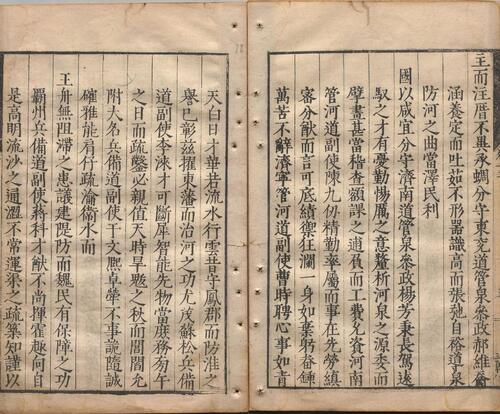 主而注厝不異承蜩分守東兖道管泉參政郝維喬
涵養定而吐茹不形器識高而張弛自裕導泉
防河之曲當澤民利
國以咸宜分守濟南道管泉參政楊芳秉長駕遠
馭之才有憂勤惕厲之意釐析河泉之源委而
擘畫甚當稽查額課之逋負而工費允資河南
管河道副使陳九仞精勤率屬而事在先勞縝
審分猷而言可底績禦狂瀾 身如葉躬畚鍤
萬苦不辭濟寧管河道副使曹時聘心事如青
天白日才華若流水行雲昔守鳳郡而防淮之
譽已彰兹擢東藩而治河之功尤茂蘇松兵備
道副使李淶才可斷犀智能先物當庶務旁午
之日而疏鑿必親值天時旱熯之秋而閘閘允
附大名兵備道副使于文熙卓犖不事詭隨誠
確雅能肩仔疏瀹衛水而
王舟無阻滯之患議建隄防而魏民有保障之功
霸州兵備道副使蔣科才猷不尚揮霍趣向自
是高明流沙之通濇不常運渠之疏築知謹以